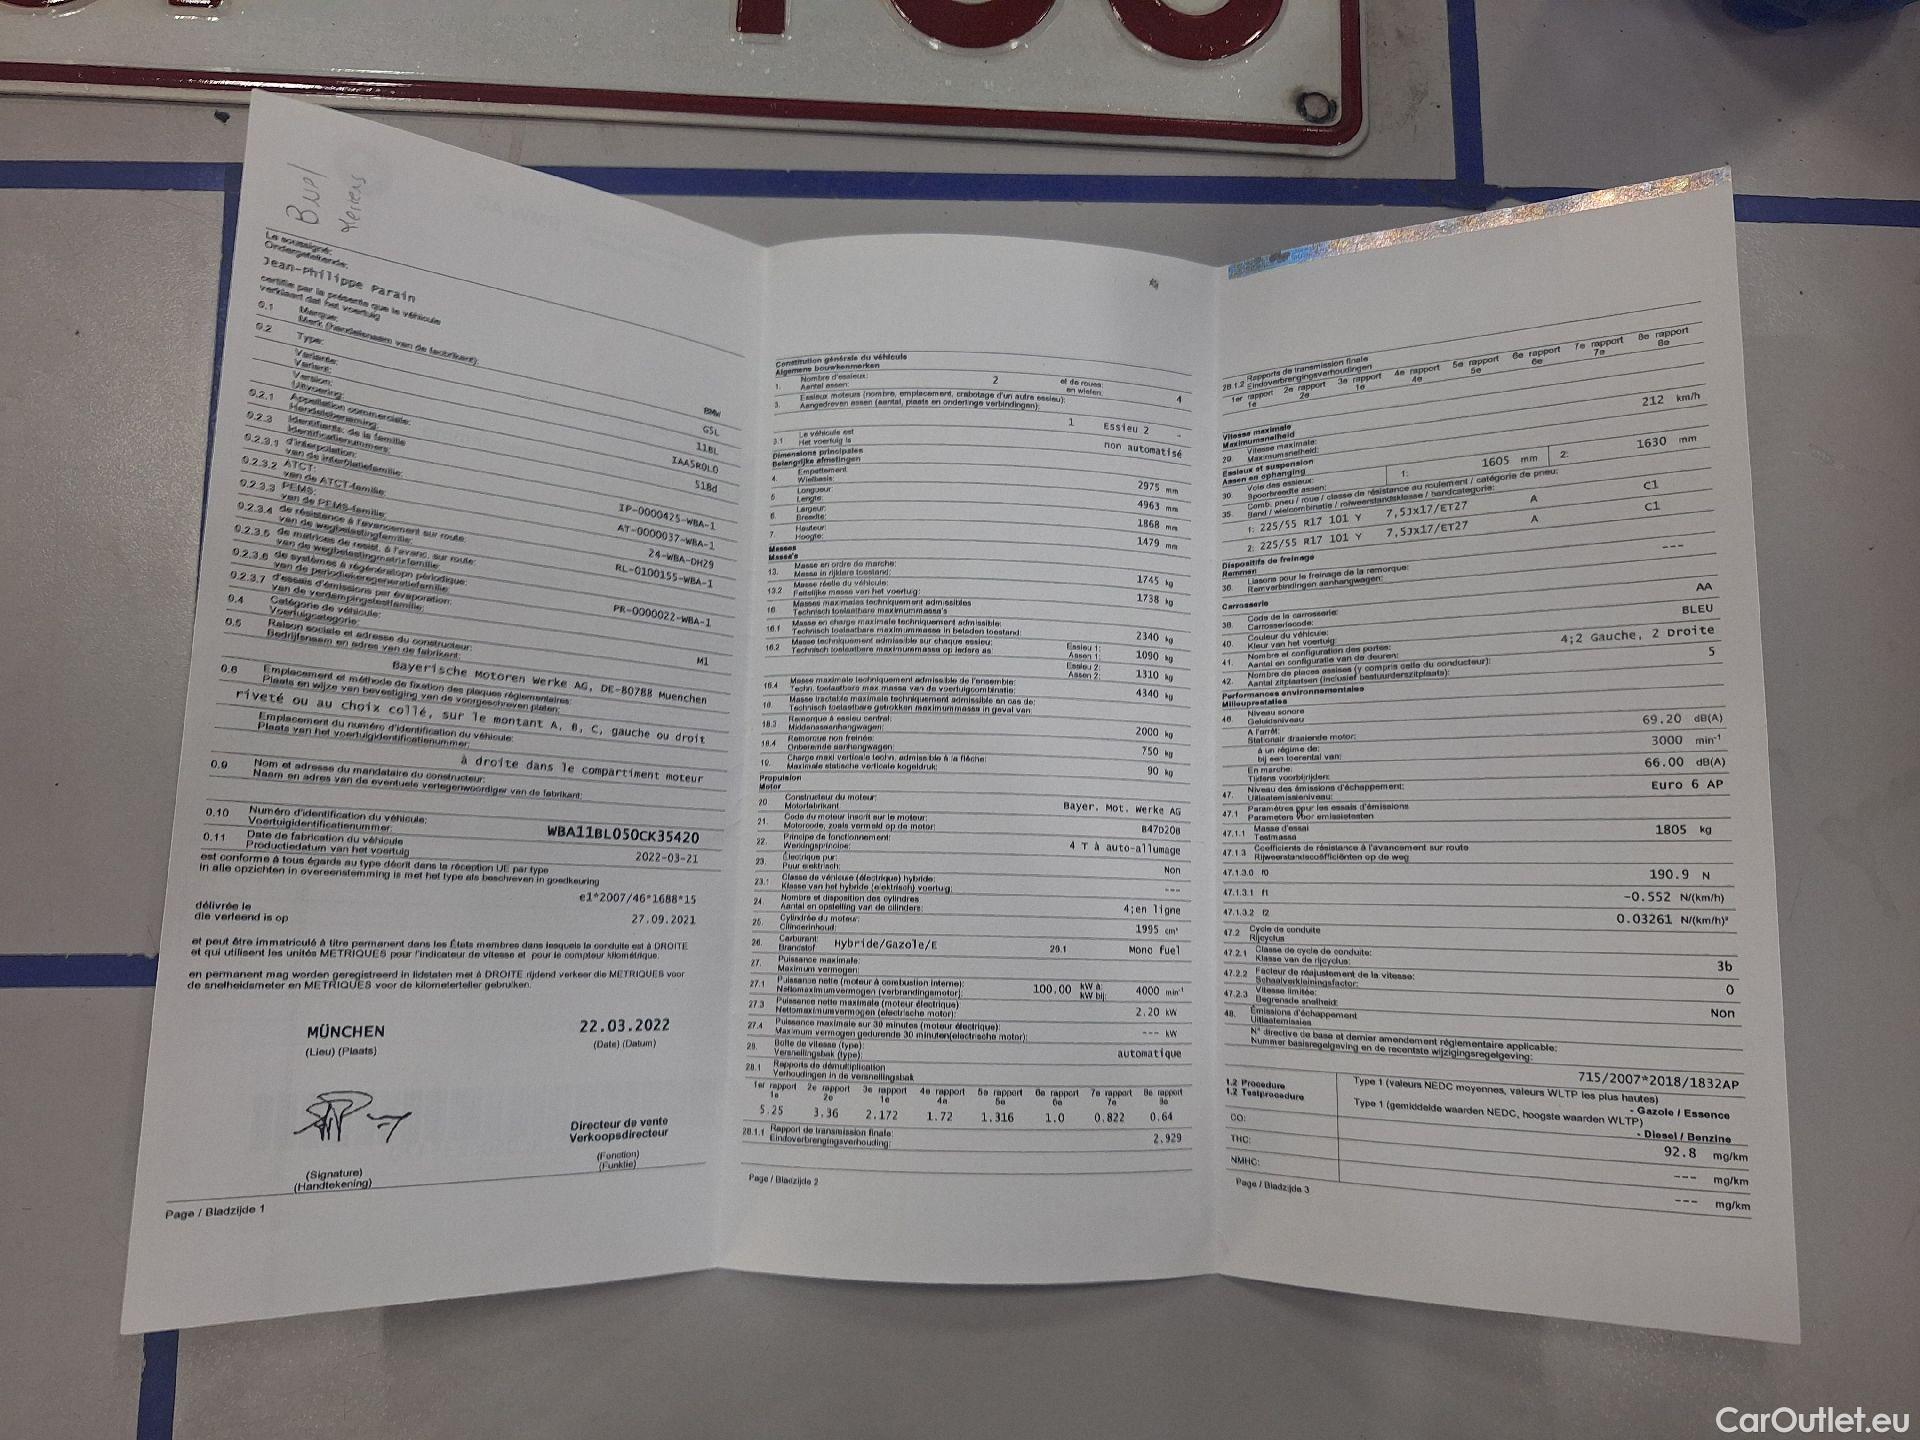 Le soussigné:
Ondergetekende:
Jean-Philippe Parain
certifie par la présente que le véhicule
verklaart dat het voertuig
0.1 Marque:
Merk (handelsnaam van de fabrikant): BMW
0.2 Type: G5L
Variante:
Variant: 11BL
Version:
Uitvoering: IAA5R0L0
0.2.1 Appellation commerciale:
Handelsbenaming: 518d
0.2.3 Identifiants: de la famille
Identificatienummers:
0.2.3.1 d'interpolation:
van de interpolatiefamilie: IP-0000425-WBA-1
0.2.3.2 ATCT:
van de ATCT-familie: AT-0000037-WBA-1
0.2.3.3 PEMS:
van de PEMS-familie: 24-WBA-DH29
0.2.3.4 de résistance à l'avancement sur route:
van de wegbelastingfamilie: RL-0100155-WBA-1
0.2.3.5 de matrices de resist. à l'avanc. sur route:
van de wegbelastingmatrixfamilie:
0.2.3.6 de systèmes à régénératopn périodique:
van de periodiekeregeneratiefamilie: PR-0000022-WBA-1
0.2.3.7 d'essais d'émissions par évaporation:
van de verdampingstestfamilie:
0.4 Catégorie de véhicule:
Voertuigcategorie: M1
0.5 Raison sociale et adresse du constructeur:
Bedrijfsnaam en adres van de fabrikant:
Bayerische Motoren Werke AG, DE-80788 Muenchen
0.6 Emplacement et méthode de fixation des plaques réglementaires:
Plaats en wijze van bevestiging van de voorgeschreven platen:
riveté ou au choix collé, sur le montant A, B, C, gauche ou droit
Emplacement du numéro d'identification du véhicule:
Plaats van het voertuigidentificatienummer:
à droite dans le compartiment moteur
0.9 Nom et adresse du mandataire du constructeur:
Naam en adres van de eventuele vertegenwoordiger van de fabrikant:
0.10 Numéro d'identification du véhicule:
Voertuigidentificatienummer: WBA11BL050CK35420
0.11 Date de fabrication du véhicule
Productiedatum van het voertuig 2022-03-21
est conforme à tous égards au type décrit dans la réception UE par type
in alle opzichten in overeenstemming is met het type als beschreven in goedkeuring
e1*2007/46*1688*15
délivrée le
die verleend is op 27.09.2021
et peut être immatriculé à titre permanent dans les États membres dans lesquels la conduite est à DROITE
et qui utilisent les unités METRIQUES pour l'indicateur de vitesse et pour le compteur kilométrique.
en permanent mag worden geregistreerd in lidstaten met à DROITE rijdend verkeer die METRIQUES voor
de snelheidsmeter en METRIQUES voor de kilometerteller gebruiken.
MÜNCHEN 22.03.2022
(Lieu) (Plaats) (Date) (Datum)
Directeur de vente
Verkoopsdirecteur
(Signature) (Fonction)
(Handtekening) (Funktie)
Page / Bladzijde 1
Constitution générale du véhicule
Algemene bouwkenmerken
1. Nombre d'essieux: 2 et de roues: 4
Aantal assen: en wielen:
3. Essieux moteurs (nombre, emplacement, crabotage d'un autre essieu):
Aangedreven assen (aantal, plaats en onderlinge verbindingen):
1 Essieu 2 -
3.1 Le véhicule est
Het voertuig is non automatisé
Dimensions principales
Belangrijke afmetingen
4. Empattement:
Wielbasis: 2975 mm
5. Longueur:
Lengte: 4963 mm
6. Largeur:
Breedte: 1868 mm
7. Hauteur:
Hoogte: 1479 mm
Masses
Massa's
13. Masse en ordre de marche:
Massa in rijklare toestand: 1745 kg
13.2 Masse réelle du véhicule:
Feitelijke massa van het voertuig: 1738 kg
16. Masses maximales techniquement admissibles
Technisch toelaatbare maximummassa's
16.1 Masse en charge maximale techniquement admissible:
Technisch toelaatbare maximummassa in beladen toestand: 2340 kg
16.2 Masse techniquement admissible sur chaque essieu: Essieu 1:
Technisch toelaatbare maximummassa op iedere as: Assen 1: 1090 kg
Essieu 2:
Assen 2: 1310 kg
16.4 Masse maximale techniquement admissible de l'ensemble:
Techn. toelaatbare max massa van de voertuigcombinatie: 4340 kg
18. Masse tractable maximale techniquement admissible en cas de:
Technisch toelaatbare getrokken maximummassa in geval van:
18.3 Remorque à essieu central:
Middenasaanhangwagen: 2000 kg
18.4 Remorcue non freinée:
Onberemde aanhangwagen: 750 kg
19. Charge maxi verticale techn. admissible à la flèche:
Maximale statische verticale kogeldruk: 90 kg
Propulsion
Motor
20 Constructeur du moteur:
Motorfabrikant Bayer. Mot. Werke AG
21. Code du moteur inscrit sur le moteur:
Motorcode, zoals vermeld op de motor: B47D20B
22. Principe de fonctionnement:
Werkingsprincipe: 4 T à auto-allumage
23. Électrique pur:
Puur elektrisch: Non
23.1 Classe de véhicule (électrique) hybride:
Klasse van het hybride (elektrisch) voertuig: ---
24. Nombre et disposition des cylindres
Aantal en opstelling van de cilinders: 4;en ligne
25. Cylindrée du moteur:
Cilinderinhoud: 1995 cm³
26. Carburant:
Brandstof Hybride/Gazole/E 26.1 Mono fuel
27. Puissance maximale:
Maximum vermogen:
27.1 Puissance nette (moteur à combustion interne):
Nettomaximumvermogen (verbrandingsmotor): 100.00 kW à: kW bij: 4000 min⁻¹
27.3 Puissance nette maximale (moteur électrique)
Nettomaximumvermogen (electrische motor): 2.20 kW
27.4 Puissance maximale sur 30 minutes (moteur électrique):
Maximum vermogen gedurende 30 minuten(electrische motor): --- kW
28. Boîte de vitesse (type):
Versnellingsbak (type): automatique
28.1 Rapports de démultiplication
Verhoudingen in de versnellingsbak
1er rapport 2e rapport 3e rapport 4e rapport 5e rapport 6e rapport 7e rapport 8e rapport
1e 2e 1e 4e 5e 6e 7e 8e
5.25 3.36 2.172 1.72 1.316 1.0 0.822 0.64
28.1.1 Rapport de transmission finale:
Eindoverbrengingsverhouding: 2.929
Page / Bladzijde 2
28.1.2 Rapports de transmission finale
Eindoverbrengingsverhoudingen
1er rapport 2e rapport 3e rapport 4e rapport 5e rapport 6e rapport 7e rapport 8e rapport
1e 2e 1e 4e 5e 6e 7e 8e
Vitesse maximale
Maximumsnelheid
29. Vitesse maximale:
Maximumsnelheid: 212 km/h
Essieux et suspension
Assen en ophanging
30. Voie des essieux:
Spoorbreedte assen: 1: 1605 mm 2: 1630 mm
35. Comb. pneu / roue / classe de résistance au roulement / catégorie de pneu:
Band / wielcombinatie / rolweerstandsklasse / bandcategorie:
1: 225/55 R17 101 Y 7,5Jx17/ET27 A C1
2: 225/55 R17 101 Y 7,5Jx17/ET27 A C1
Dispositifs de freinage
Remmen
36. Liaisons pour le freinage de la remorque:
Remverbindingen aanhangwagen: ---
Carrosserie
38. Code de la carrosserie:
Carrosseriecode: AA
40. Couleur du véhicule:
Kleur van het voertuig: BLEU
41. Nombre et configuration des portes:
Aantal en configuratie van de deuren: 4;2 Gauche, 2 Droite
42. Nombre de places assises (y compris celle du conducteur):
Aantal zitplaatsen (inclusief bestuurderszitplaats): 5
Performances environnementales
Milieuprestaties
46. Niveau sonore
Geluidsniveau
À l'arrêt:
Stationair draaiende motor: 69.20 dB(A)
à un régime de:
bij een toerental van: 3000 min⁻¹
En marche:
Tijdens voorbijrijden: 66.00 dB(A)
47. Niveau des émissions d'échappement:
Uitlaatemissieniveau: Euro 6 AP
47.1 Paramètres pour les essais d'émissions
Parameters voor emissietesten
47.1.1 Masse d'essai
Testmassa 1805 kg
47.1.3 Coefficients de résistance à l'avancement sur route
Rijweerstandscoëfficiënten op de weg
47.1.3.0 f0 190.9 N
47.1.3.1 f1 -0.552 N/(km/h)
47.1.3.2 f2 0.03261 N/(km/h)²
47.2 Cycle de conduite
Rijcyclus
47.2.1 Classe de cycle de conduite:
Klasse van de rijcyclus: 3b
47.2.2 Facteur de réajustement de la vitesse:
Schaalverkleiningsfactor: 0
47.2.3 Vitesse limitée:
Begrensde snelheid: Non
48. Émissions d'échappement
Uitlaatemissies
N° directive de base et dernier amendement réglementaire applicable:
Nummer basisregelgeving en de recentste wijzigingsregelgeving:
715/2007*2018/1832AP
1.2 Procedure Type 1 (valeurs NEDC moyennes, valeurs WLTP les plus hautes)
- Gazole / Essence
1.2 Testprocedure Type 1 (gemiddelde waarden NEDC, hoogste waarden WLTP)
- Diesel / Benzine
CO: 92.8 mg/km
THC: --- mg/km
NMHC: --- mg/km
Page / Bladzijde 3
CarOutlet.eu